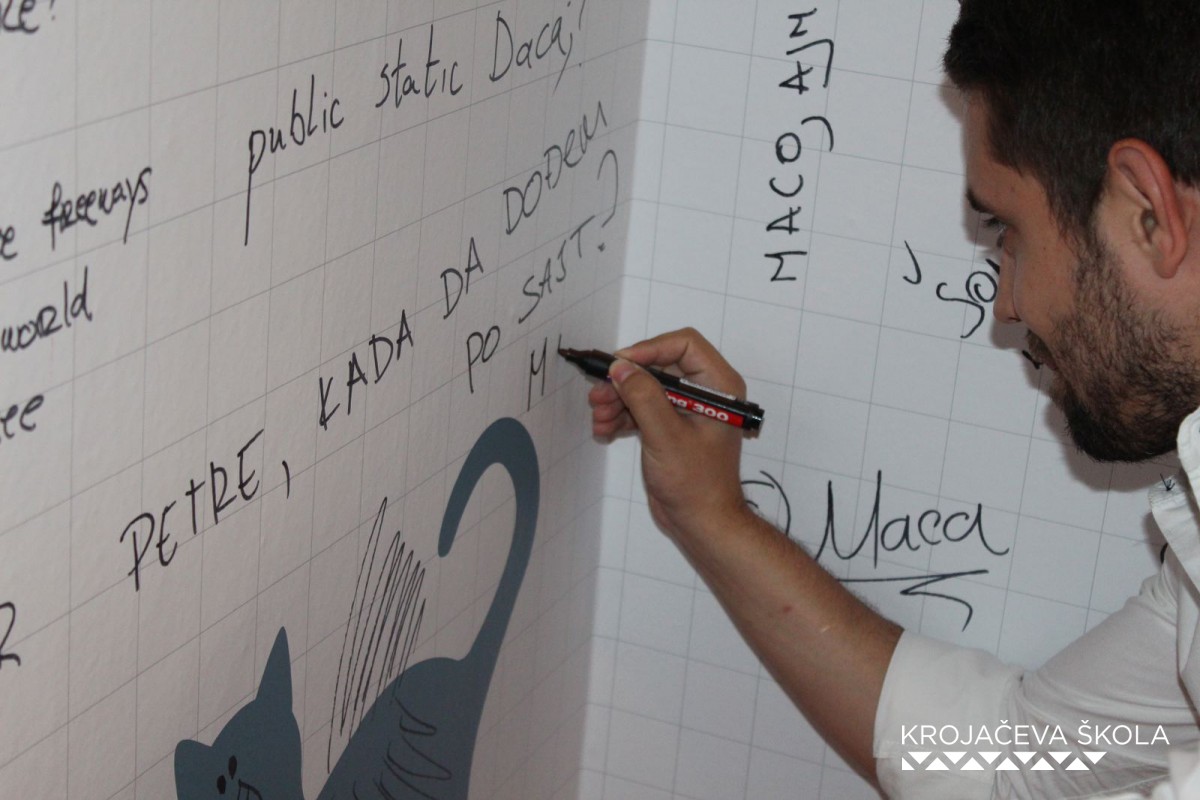 public static Daca;!
freeways
world
PETRE, KADA DA DOĐEM
PO SAJT?
M
MACO, AJM
J
Maca
ng 300
KROJAČEVA ŠKOLA